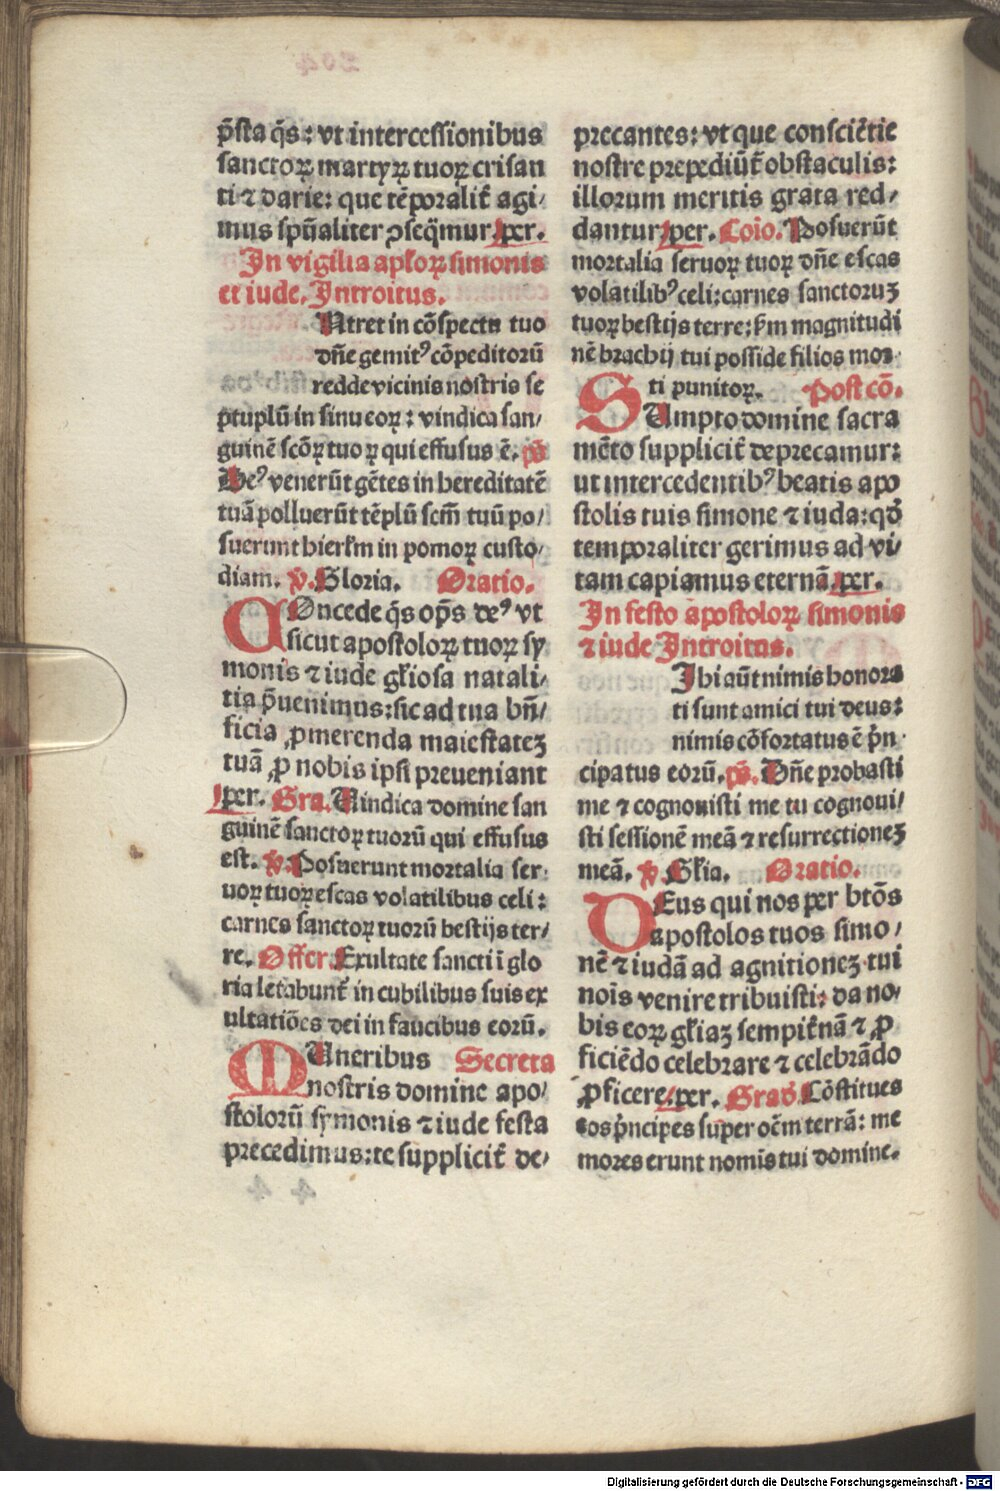 p̄sta q̄s: vt intercessionibus
sanctoꝝ martyꝝ tuoꝝ crisan
ti ⁊ darie: que tēporalit̄ agi/
mus spūaliter ꝓseq̄mur. per.
In vigilia apl'oꝝ simonis
et iude. Introitus.
INtret in cōspectu tuo
dn̄e gemit⁹ cōpeditorū
redde vicinis nostris se
ptuplū in sinu eoꝝ: vindica san/
guinē scōꝝ tuoꝝ qui effusus ē. p̄s
De⁹ venerūt gētes in hereditatē
tuā polluerūt tēplū scm̄ tuū po/
suerunt hierl'm in pomoꝝ custo/
diam. v̄. Gloria. Oratio.
COncede q̄s op̄s de⁹ vt
sicut apostoloꝝ tuoꝝ sy
monis ⁊ iude gl'iosa natali/
tia p̄uenimus: sic ad tua bn̄/
ficia ꝓmerenda maiestatez
tuā ꝓ nobis ipsi preueniant
per. Gra. Vindica domine san
guinē sanctoꝝ tuorū qui effusus
est. v̄. Posuerunt mortalia ser/
uoꝝ tuoꝝ escas volatilibus celi:
carnes sanctoꝝ tuorū bestijs ter/
re. Offer. Exultate sancti i glo
ria letabunt̄ in cubilibus suis ex
ultatiōes dei in faucibus eorū.
MUneribus Secreta
nostris domine apo/
stolorū symonis ⁊ iude festa
precedimus: te supplicit̄ de/
precantes: vt que consciētie
nostre prepediūt̄ obstaculis:
illorum meritis grata red/
dantur. per. Coīo. Posuerūt
mortalia seruoꝝ tuoꝝ dn̄e escas
volatilib⁹ celi: carnes sanctoruꝫ
tuoꝝ bestijs terre: s'm magnitudi
nē brachij tui posside filios mor
ti punitoꝝ. Post cō.
SUmpto domine sacra
mēto supplicit̄ deprecamur:
ut intercedentib⁹ beatis apo
stolis tuis simone ⁊ iuda: qd̄
temporaliter gerimus ad vi/
tam capiamus eternā. per.
In festo apostoloꝝ simonis
⁊ iude Introitus.
MIhi aūt nimis honora
ti sunt amici tui deus:
nimis cōfortatus ē p̄n
cipatus eorū. p̄s. Dn̄e probasti
me ⁊ cognouisti me tu cognoui/
sti sessionē meā ⁊ resurrectioneꝫ
meā. v̄. Gl'ia. Oratio.
DEus qui nos per btōs
apostolos tuos simo/
nē ⁊ iudā ad agnitioneꝫ tui
nois̄ venire tribuisti: da no/
bis eoꝝ gl'iaꝫ sempit̄nā ⁊ ꝓ
ficiēdo celebrare ⁊ celebrādo
ꝓficere. per. Grad̄. Cōstitues
eos p̄ncipes super oēm terrā: me
mores erunt nomīs tui domine.
Digitalisierung gefördert durch die Deutsche Forschungsgemeinschaft - DFG